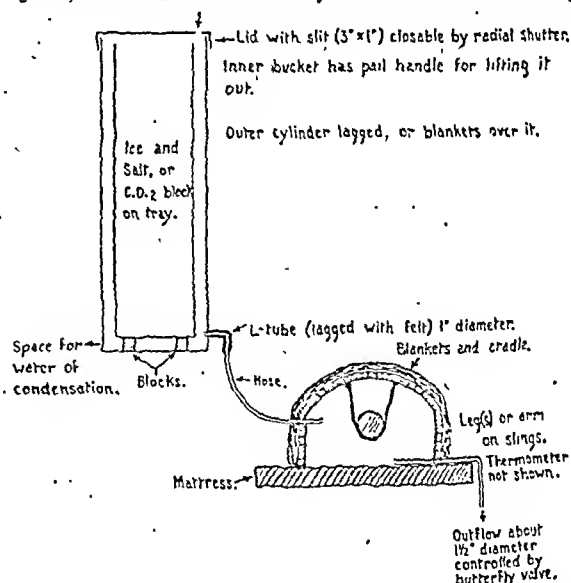 Lid with slit (3" × 1") closable by radial shutter.
Inner bucket has pail handle for lifting it
out.
Outer cylinder lagged, or blankets over it.
Ice and
Salt, or
C.O.2 block
on tray.
L-tube (lagged with felt) 1" diameter.
Space for
water of
condensation.
Blocks.
Hose.
Blankets and cradle.
Leg(s) or arm
on slings.
Thermometer
not shown.
Mattress.
Outflow about
1½" diameter
controlled by
butterfly valve.